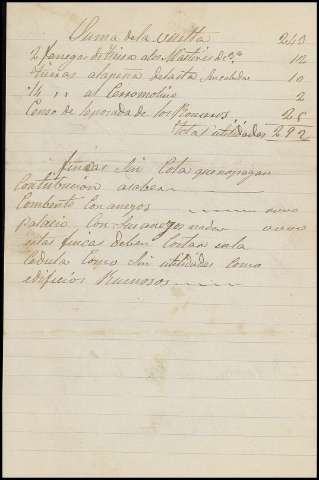 Suma de la vuelta 243
2 Fanegas de tierra a los Martires de 2ª 12
tierras a la peña de la ita 10
14 " " al Cerromolino 2
Censo de la posada de los Romeros 25
total utilidades 292
fincas Sin Cota que no pagan
Contribucion a saber
Combento Con anejos
palacio, Con Sus anejos
estas fincas deben Constar en la
Cedula Como Sin utilidades como
edificios Ruinosos